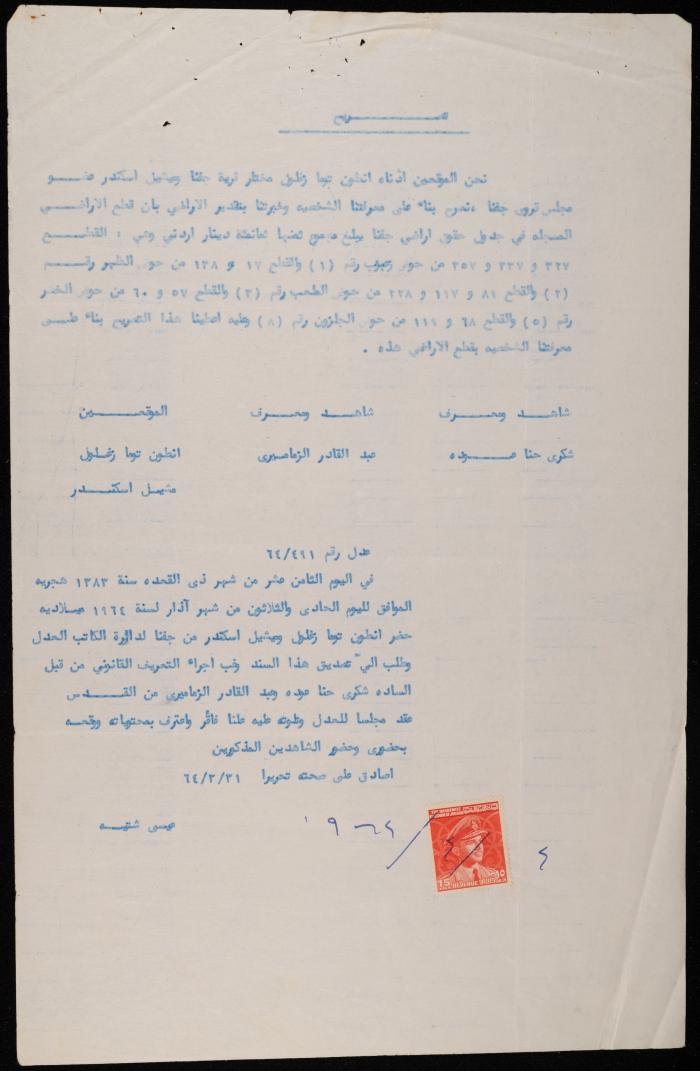 تصريح
نحن الموقعين ادناه انطون توما زغلول مختار قرية جفنا وميشيل اسكندر عضو
مجلس قروى جفنا ، نصرح بناء على معرفتنا الشخصيه وخبرتنا بتقدير الاراضي بان قطع الاراضي
المسجله في جدول حقوق اراضي جفنا يبلغ مجموع ثمنها ثمانمئة دينار اردني وهي : القطع
٣٢٧ و ٣٣٧ و ٣٥٧ من حوض رقم (١) والقطع ١٧ و ١٣٨ من حوض الظهر رقم
(٢) والقطع ٨١ و ١١٧ و ٢٢٨ من حوض رقم (٣) والقطع ٥٧ و ٦٠ من حوض
رقم (٥) والقطع ٦٨ و ١١٩ من حوض الجلزون رقم (٨) وعليه اعطينا هذا التصريح بناء على
معرفتنا الشخصيه بقطع الاراضي هذه .
شاهد ومعرف شاهد ومعرف الموقعين
شكرى حنا عوده عبد القادر الزماميرى انطون توما زغلول
مشيل اسكندر
عدل رقم ٦٤/٤٩١
في اليوم الثامن عشر من شهر ذى القعده سنة ١٣٨٣ هجريه
الموافق لليوم الحادى والثلاثون من شهر آذار لسنة ١٩٦٤ ميلاديه
حضر انطون توما زغلول وميشيل اسكندر من جفنا لدائرة الكاتب العدل
وطلب الي تصديق هذا السند وغب اجراء التعريف القانوني من قبل
الساده شكرى حنا عوده وعبد القادر الزماميرى من القدس
عقد مجلسا للعدل وتلوته عليه علنا فاقر واعترف بمحتوياته ووقعه
بحضورى وحضور الشاهدين المذكورين
اصادق على صحته تحريرا ٦٤/٣/٣١
عيسى شتيه
٤ / ٤ / ١٩٦٤
15 REVENUE ١٥